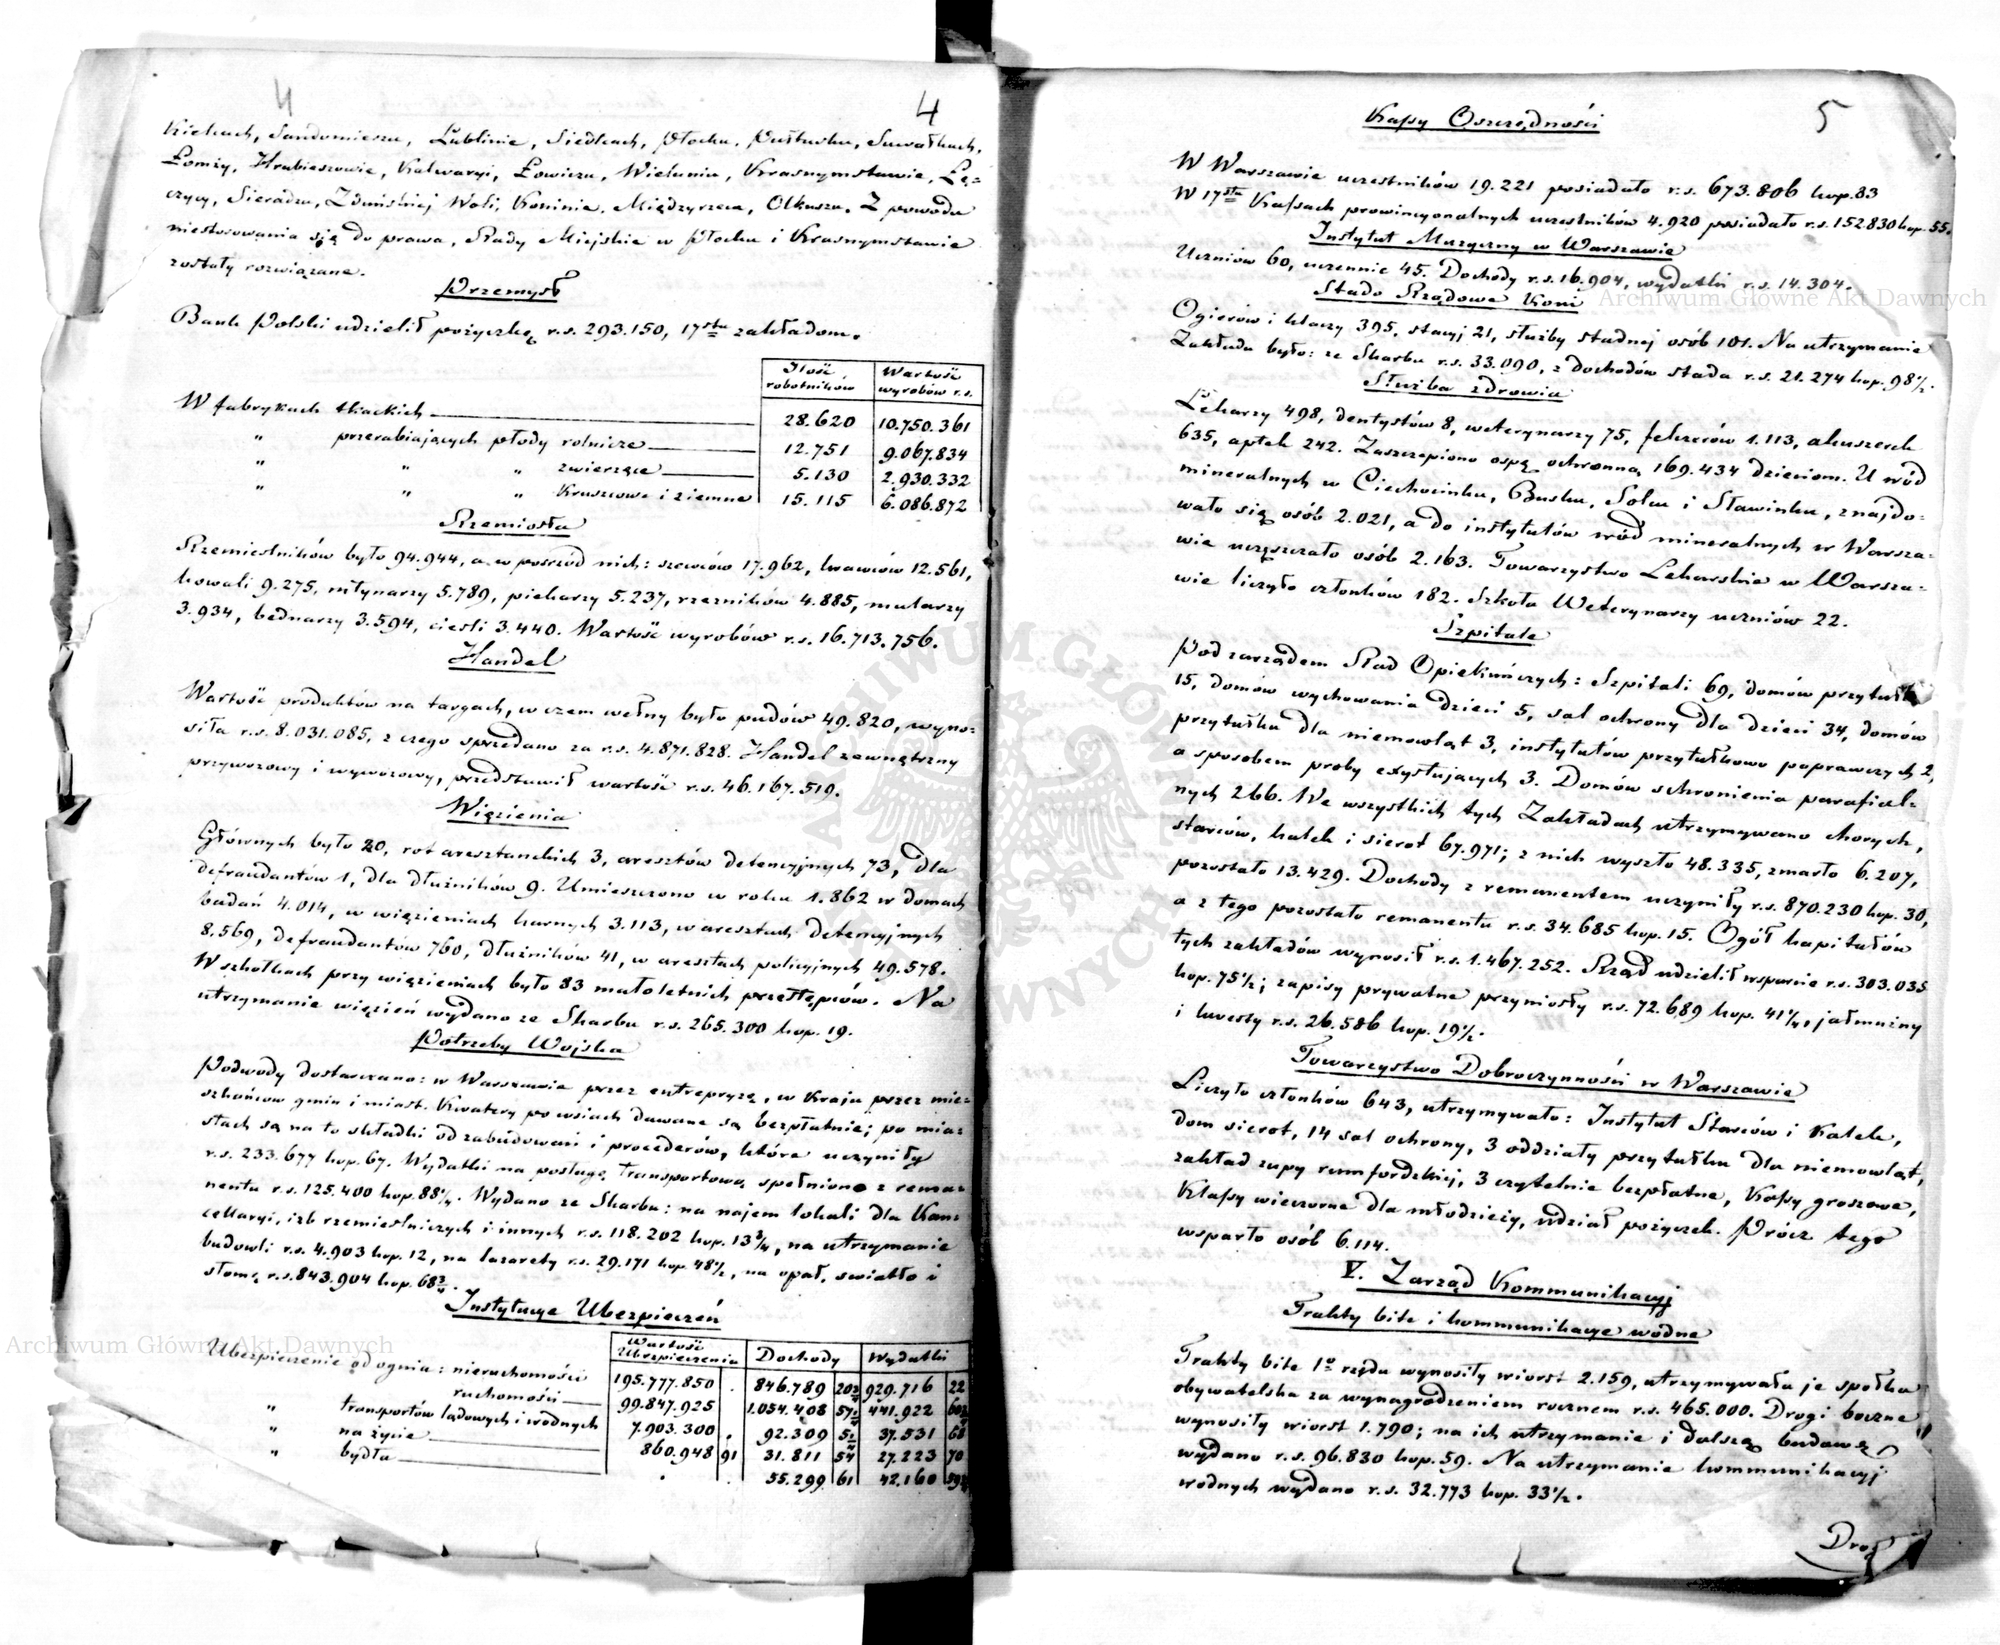 4
4
Kielcach, Sandomierzu, Lublinie, Siedlcach, Płocku, Pułtusku, Suwałkach,
Łomży, Hrubieszowie, Kalwaryi, Łowiczu, Wieluniu, Krasnymstawie, Łę=
czycy, Sieradzu, Zduńskiej Woli, Koninie, Międzyrzecu, Olkuszu. Z powodu
niestosowania się do prawa, Rady Miejskie w Płocku i Krasnymstawie
zostały rozwiązane.
Przemysł
Bank Polski udzielił pożyczkę r.s. 293.150, 17stu zakładom.
Ilość robotników | Wartość wyrobów r.s.
W fabrykach tkackich 28.620 10.750.361
" przerabiających płody rolnicze 12.751 9.067.834
" " " zwierzęce 5.130 2.930.332
" " " Kruszcowe i ziemne 15.115 6.086.872
Rzemiosła
Rzemieślników było 94.944, a w pośród nich: szewców 17.962, krawców 12.561,
kowali 9.275, młynarzy 5.789, piekarzy 5.237, rzeźników 4.885, mularzy
3.934, bednarzy 3.594, cieśli 3.440. Wartość wyrobów r.s. 16.713.756.
Handel
Wartość produktów na targach, w czem wełny było pudów 49.820, wyno=
siła r.s. 8.031.085, z czego sprzedano za r.s. 4.871.828. Handel zewnętrzny
przywozowy i wywozowy, przedstawił wartość r.s. 46.167.519.
Więzienia
Głównych było 20, rot aresztanckich 3, aresztów detencyjnych 73, dla
defraudantów 1, dla dłużników 9. Umieszczono w roku 1.862 w domach
badań 4.014, w więzieniach karnych 3.113, w aresztach detencyjnych
8.569, defraudantów 760, dłużników 41, w aresztach policyjnych 49.578.
W szkołkach przy więzieniach było 83 małoletnich przestępców. Na
utrzymanie więzień wydano ze Skarbu r.s. 265.300 kop. 19.
Potrzeby Wojska
Podwody dostarczano: w Warszawie przez entrepryzę, w Kraju przez mie=
szkańców gmin i miast. Kwatery po wsiach dawane są bezpłatnie; po mia=
stach są na to składki od zabudowań i procederów, które uczyniły
r.s. 233.677 kop. 67. Wydatki na posługę transportową spełniono z rema=
nentu r.s. 125.400 kop. 88¼. Wydano ze Skarbu: na najem lokali dla Kan=
cellaryi, izb rzemieślniczych i innych r.s. 118.202 kop. 13¾, na utrzymanie
budowli r.s. 4.903 kop. 12, na lazarety r.s. 29.171 kop. 48½, na opał, światło i
słomę r.s. 843.904 kop. 68¾.
Instytucye Ubezpieczeń
Wartość Ubezpieczenia | Dochody | Wydatki
Ubezpieczenie od ognia: nieruchomości 195.777.850 . 846.789 929.716 22
ruchomości 99.847.925 1.054.408 441.922
" transportów lądowych i wodnych 7.903.300 . 92.309 37.531 68
" na życie 860.948 91 31.811 54 27.223 70
" bydła . . 55.299 61 42.160
5
Kassy Oszczędności
W Warszawie uczestników 19.221 posiadało r.s. 673.806 kop. 83
W 17stu Kassach prowincyonalnych uczestników 4.920 posiadało r.s. 152.830 kop. 55.
Instytut Muzyczny w Warszawie
Uczniów 60, uczennic 45. Dochody r.s. 16.904, wydatki r.s. 14.304.
Stado Rządowe Koni
Ogierów i klaczy 395, stacyj 21, służby stadnej osób 101. Na utrzymanie
Zakładu było: ze Skarbu r.s. 33.090, z dochodów stada r.s. 21.274 kop. 98½.
Służba zdrowia
Lekarzy 498, dentystów 8, weterynarzy 75, felczerów 1.113, akuszerek
635, aptek 242. Zaszczepiono ospę ochronną 169.434 dzieciom. U wód
mineralnych w Ciechocinku, Busku, Solcu i Sławinku, znajdo=
wało się osób 2.021, a do instytutów wód mineralnych w Warsza=
wie uczęszczało osób 2.163. Towarzystwo Lekarskie w Warsza=
wie liczyło członków 182. Szkoła Weterynarzy uczniów 22.
Szpitale
Pod zarządem Rad Opiekuńczych: Szpitali 69, domów przytułk
15, domów wychowania dzieci 5, sal ochrony dla dzieci 34, domów
przytułku dla niemowląt 3, instytutów przytułkowo poprawczych 2,
a sposobem próby exystujących 3. Domów schronienia parafial=
nych 266. We wszystkich tych Zakładach utrzymywano chorych,
starców, kalek i sierot 67.971; z nich wyszło 48.335, zmarło 6.207,
pozostało 13.429. Dochody z remanentem uczyniły r.s. 870.230 kop. 30,
a z tego pozostało remanentu r.s. 34.685 kop. 15. Ogół kapitałów
tych zakładów wynosił r.s. 1.467.252. Rząd udzielił wsparcie r.s. 303.035
kop. 75½; zapisy prywatne przyniosły r.s. 72.689 kop. 41¼, jałmużny
i kwesty r.s. 26.586 kop. 19½.
Towarzystwo Dobroczynności w Warszawie
Liczyło członków 643, utrzymywało: Instytut Starców i Kalek,
dom sierot, 14 sal ochrony, 3 oddziały przytułku dla niemowląt,
zakład zupy rumfordzkiej, 3 czytelnie bezpłatne, Kassy groszowe,
Klassy wieczorne dla młodzieży, udział pożyczek. Prócz tego
wsparło osób 6.114.
V. Zarząd Kommunikacyj
Trakty bite i kommunikacye wodne
Trakty bite 1o rzędu wynosiły wiorst 2.159, utrzymywała je spółka
obywatelska za wynagrodzeniem rocznem r.s. 465.000. Drogi boczne
wynosiły wiorst 1.790; na ich utrzymanie i dalszą budowę
wydano r.s. 96.830 kop. 59. Na utrzymanie kommunikacyj
wodnych wydano r.s. 32.773 kop. 33½.
Drog
Archiwum Główne Akt Dawnych
Archiwum Główne Akt Dawnych
ARCHIWUM GŁÓWNE AKT DAWNYCH